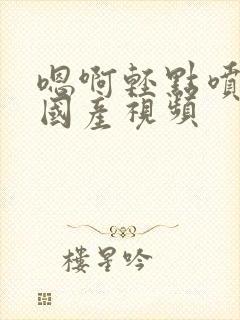 嗯啊輕點噴
國產視頻
樓星吟